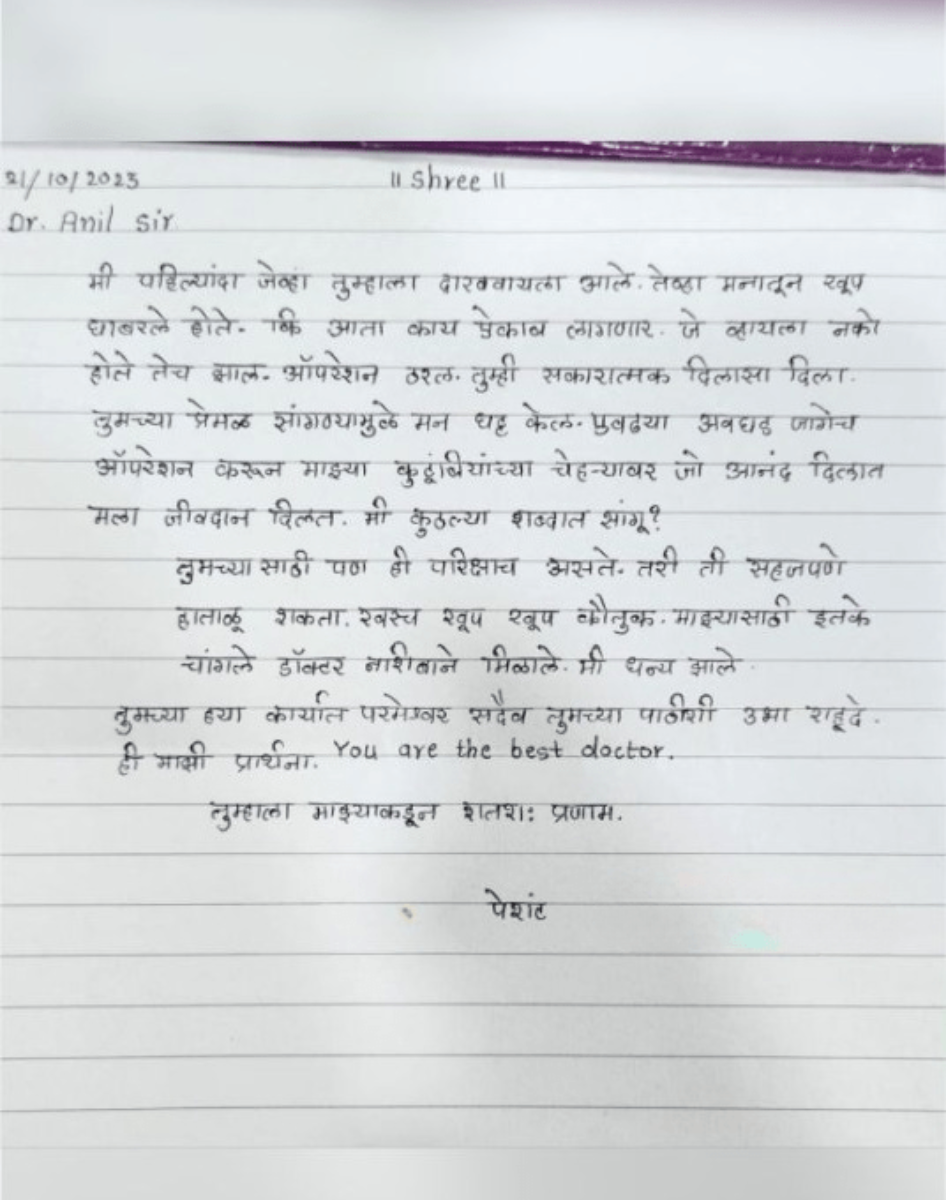 21/10/2023 || Shree ||
Dr. Anil Sir
मी पहिल्यांदा जेव्हा तुम्हाला दाखवायला आले. तेव्हा मनातून खूप
घाबरले होते. कि आता काय ऐकाव लागणार. जे व्हायला नको
होते तेच झाल. ऑपरेशन ठरल. तुम्ही सकारात्मक दिलासा दिला.
तुमच्या प्रेमळ सांगण्यामुळे मन घट्ट केल. एवढ्या अवघड जागेच
ऑपरेशन करून माझ्या कुटूंबियांच्या चेहऱ्यावर जो आनंद दिलात
मला जीवदान दिलत. मी कुठल्या शब्दात सांगू?
तुमच्या साठी पण ही परिक्षाच असते. तरी ती सहजपणे
हाताळू शकता. खरच खूप खूप कौतुक. माझ्यासाठी इतके
चांगले डॉक्टर नशिबाने मिळाले. मी धन्य झाले.
तुमच्या हया कार्यात परमेश्वर सदैव तुमच्या पाठीशी उभा राहूदे.
ही माझी प्रार्थना. You are the best doctor.
तुम्हाला माझ्याकडून शतशः प्रणाम.
पेशंट